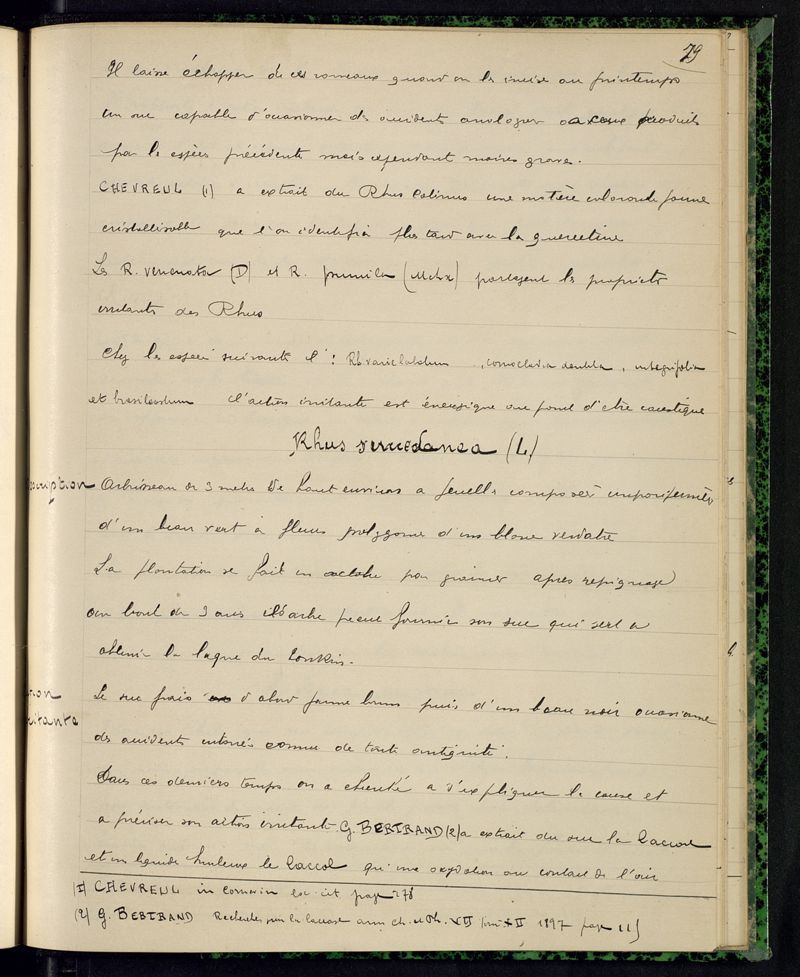 79
Il laisse échapper de ces rameaux quand on les incise au printemps
un suc capable d'occasionner des accidents analogues a ceux produits
par les espèces précédentes mais cependant moins graves.
CHEVREUL (1) a extrait du Rhus Cotinus une matière colorante jaune
cristallisable que l'on identifia plus tard avec la quercetine
Les R. venenata (D) et R. pumila (Mchx) partagent les propriétés
irritantes des Rhus
Chez les espèces suivantes : Rh varielobatum, comocladia dentata, integrifolia
et brasiliastrum l'action irritante est énergique au point d'être caustique
Rhus succedanea (L)
Description
Arbrisseau de 3 metres de haut environ a feuilles composées imparipennées
d'un beau vert à fleurs polygames d'un blanc verdatre
La plantation se fait en octobre par graines après repiquage
au bout de 3 ans l'arbre peut fournir son suc qui sert a
obtenir la laque du Tonkin.
Action
irritante
Le suc frais d'abord jaune brun puis d'un beau noir occasionne
des accidents cutanés connu de toute antiquité.
Dans ces derniers temps on a cherché a s'expliquer la cause et
a préciser son action irritante. G. BERTRAND (2) a extrait du suc la laccase
et un liquide huileux le laccol qu'une oxydation au contact de l'air
(1) CHEVREUL in loc. cit page 278
(2) G. BERTRAND Recherches sur la laccase ann ch. et Ph. XII 1897 page 115